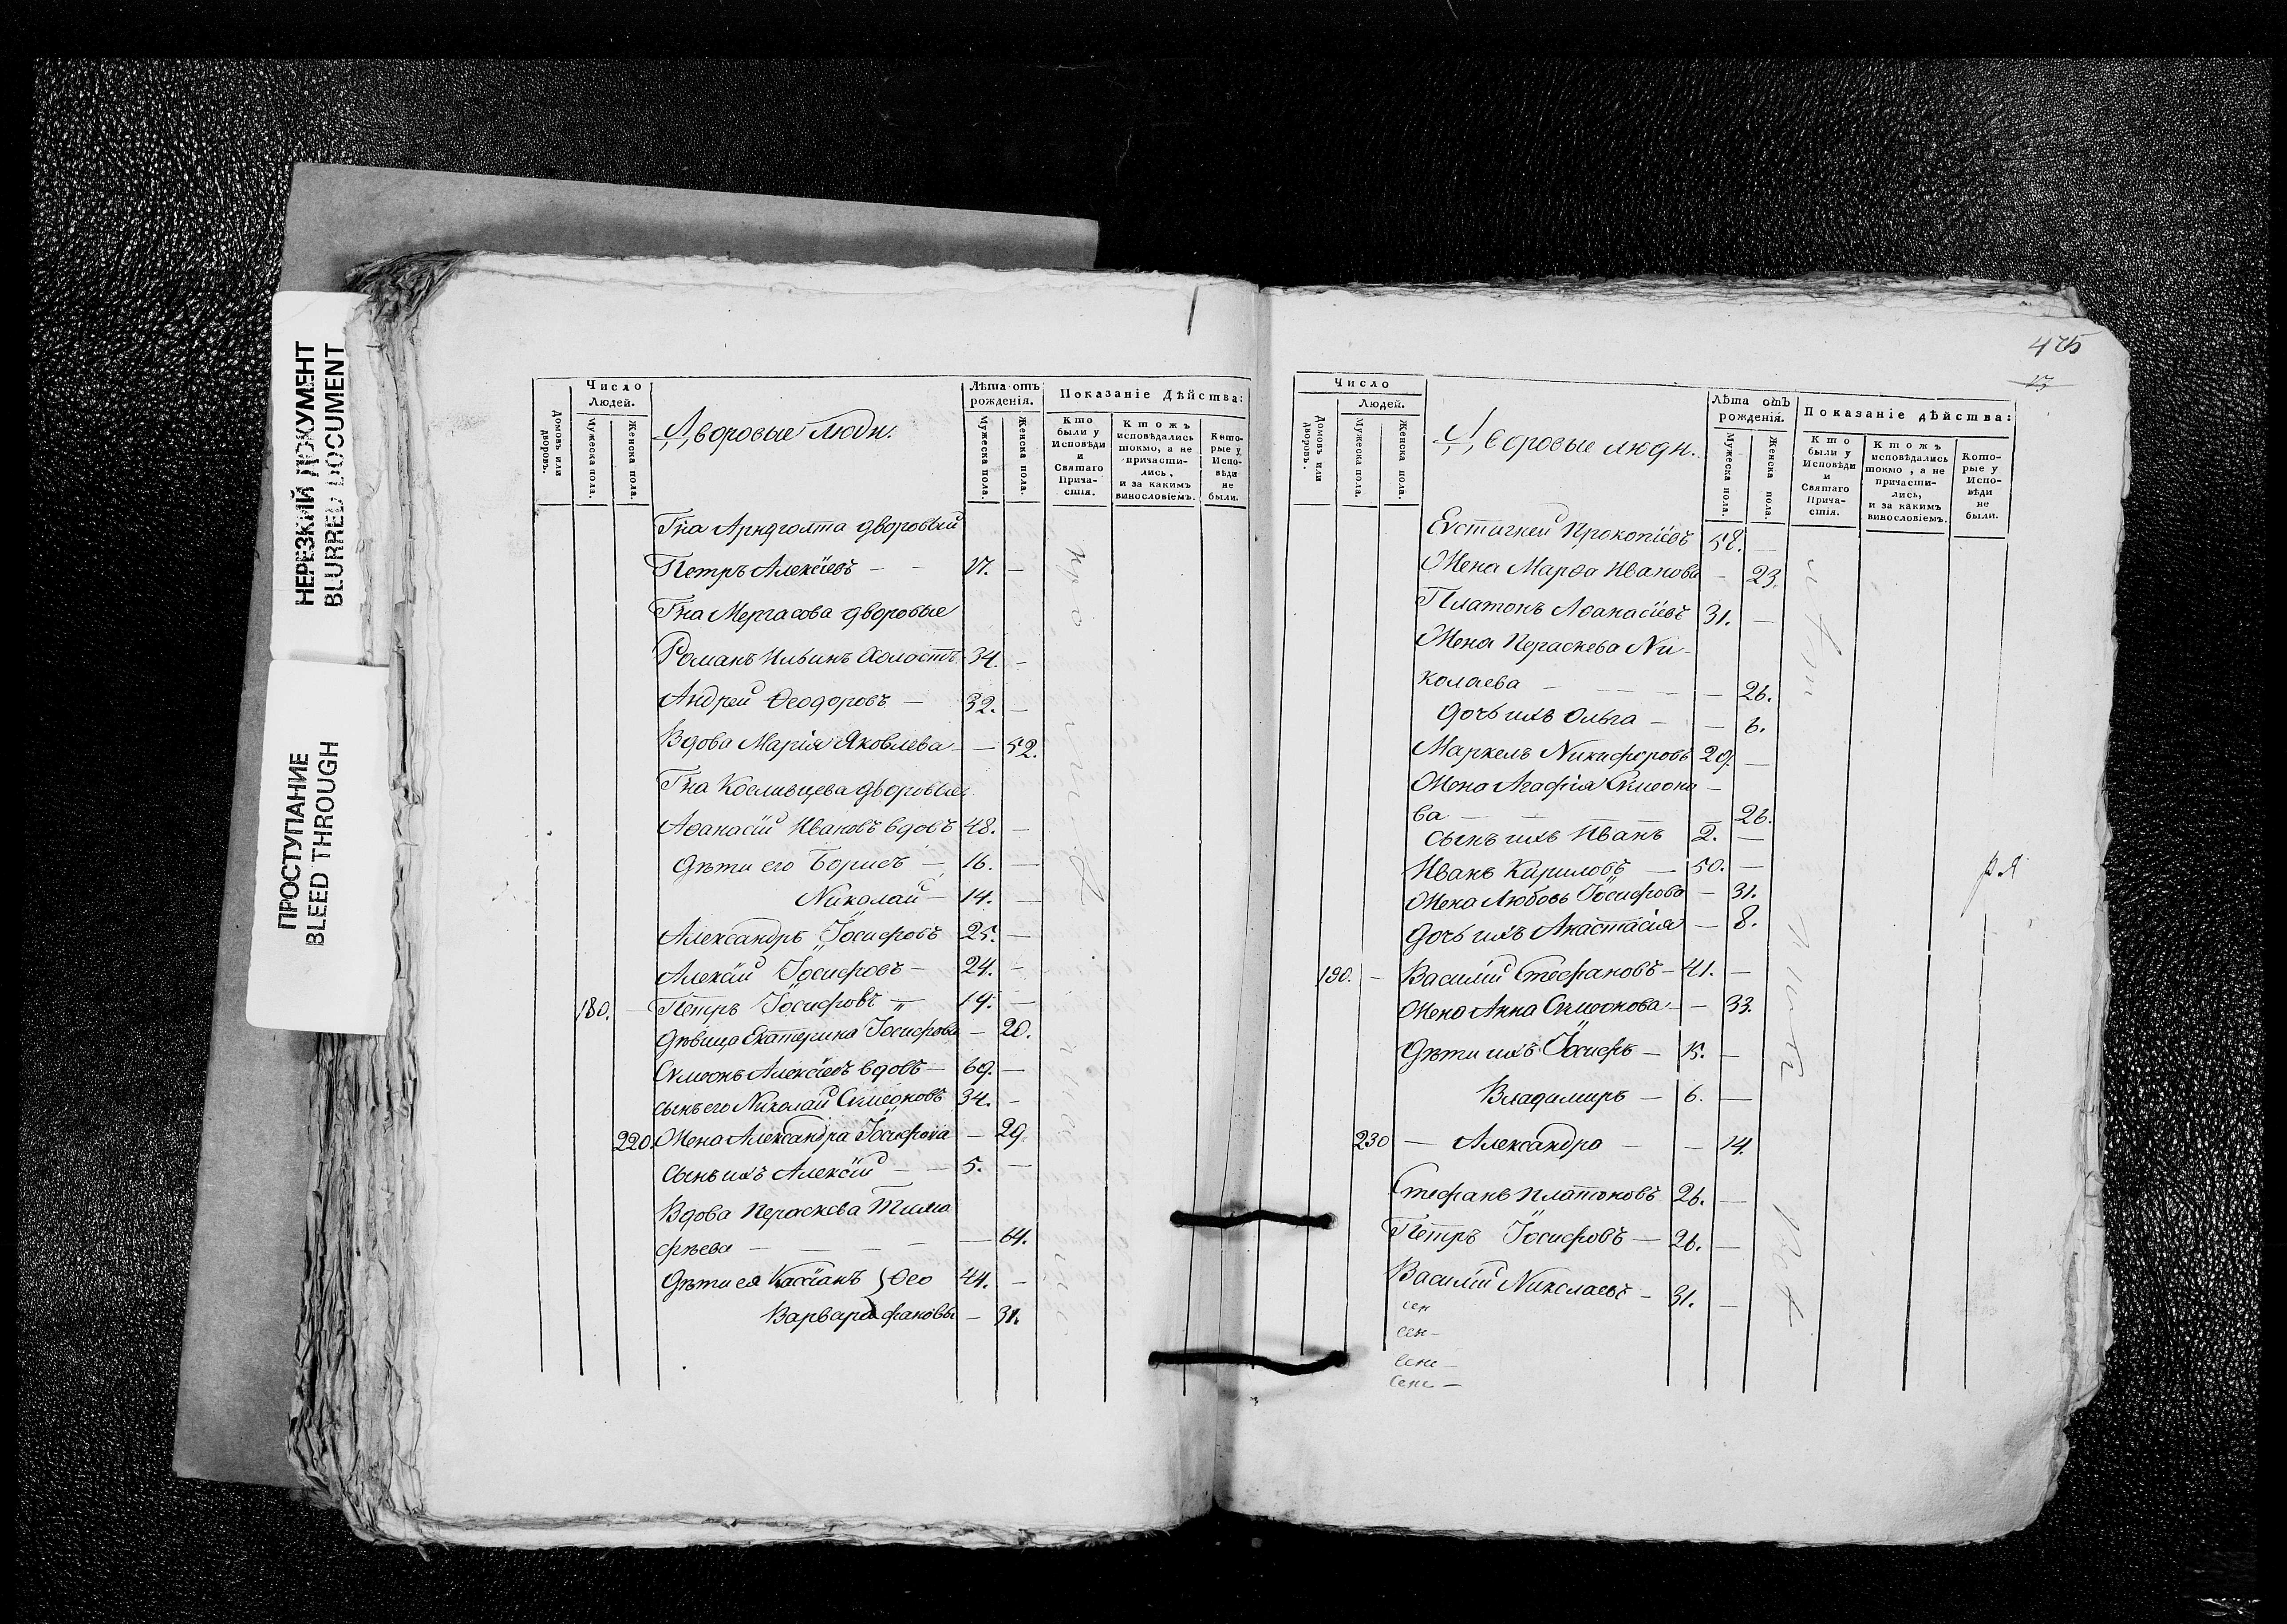 НЕРЕЗКИЙ ДОКУМЕНТ
BLURRED DOCUMENT
ПРОСТУПАНИЕ
BLEED THROUGH
Число
Людей.
Домовъ или дворовъ.
Мужеска пола.
Женска пола.
Дворовые люди.
Лѣта отъ рожденія.
Мужеска пола.
Женска пола.
Показаніе Дѣйства:
Кто были у Исповѣди и Святаго Причастія.
Ктожъ исповѣдались токмо, а не причастились, и за какимъ винословіемъ.
Которые у Исповѣди не были.
Гна Арндголта дворовый
Петръ Алексіевъ — — 17. —
Гна Мергасова дворовые
Романъ Ильинъ холостъ 34. —
Андрей Ѳеодоровъ — 32. —
Вдова Марія Яковлева — — 52.
Гна дворовые
Аѳанасій Ивановъ вдовъ 48. —
Дѣти его Борисъ — 16. —
Николай — 14. —
Александръ Іосифовъ 25. —
Алексій Іосифовъ — 24. —
180. — Петръ Іосифовъ — 19. —
Дѣвица Екатерина Іосифова — 20.
Сѵмеонъ Алексіевъ вдовъ — 69. —
сынъ его Николай Сѵмеоновъ 34. —
220. Жена Александра Іосифова — 29
Сынъ ихъ Алексій — — 5. —
Вдова Параскева Тимо
фѣева — — — — — 64.
Дѣти ея Кассіанъ } Ѳео 44. —
Варвара фановы — 31.
475
13
Число
Людей.
Домовъ или дворовъ.
Мужеска пола.
Женска пола.
Дворовые люди.
Лѣта отъ рожденія.
Мужеска пола.
Женска пола.
Показаніе дѣйства:
Кто были у Исповѣди и Святаго Причастія.
Ктожъ исповѣдались токмо, а не причастились, и за какимъ винословіемъ.
Которые у Исповѣди не были.
Евстигней Прокопіевъ 58. —
Жена Марѳа Иванова — 23.
Платонъ Аѳанасіевъ 31. —
Жена Параскева Ни-
колаева — — — — 26.
дочь ихъ Ольга — — 6.
Маркелъ Никифоровъ 29. —
Жена Агафія Сѵмеоно —
ва — — — — 26.
сынъ ихъ Иванъ 2. —
Иванъ Кириловъ — 50. —
Жена Любовь Іосифова — 31.
дочь ихъ Анастасія — 8.
190. — Василій Стефановъ — 41. —
Жена Анна Сѵмеонова — — 33.
Дѣти ихъ Іосифъ — 15. —
Владимиръ — 6. —
230 — Александра — — 14.
Стефанъ Платоновъ 26. —
Петръ Іосифовъ — 26. —
Василій Николаевъ — 31. —